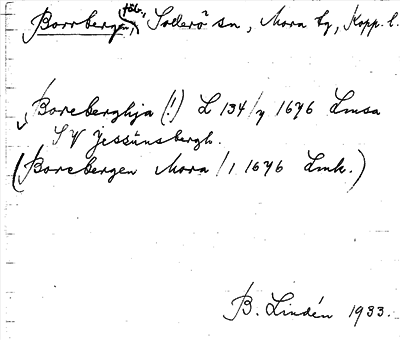 Borrbergen, (fäb., Sollerö sn, Mora tg, Kopp. l.
Boreberghja (!) L 134/y 1676 Lmsa
SV Jessünsbergh.
(Borebergen Mora/1 1676 Lmk.)
B. Lindén 1933.